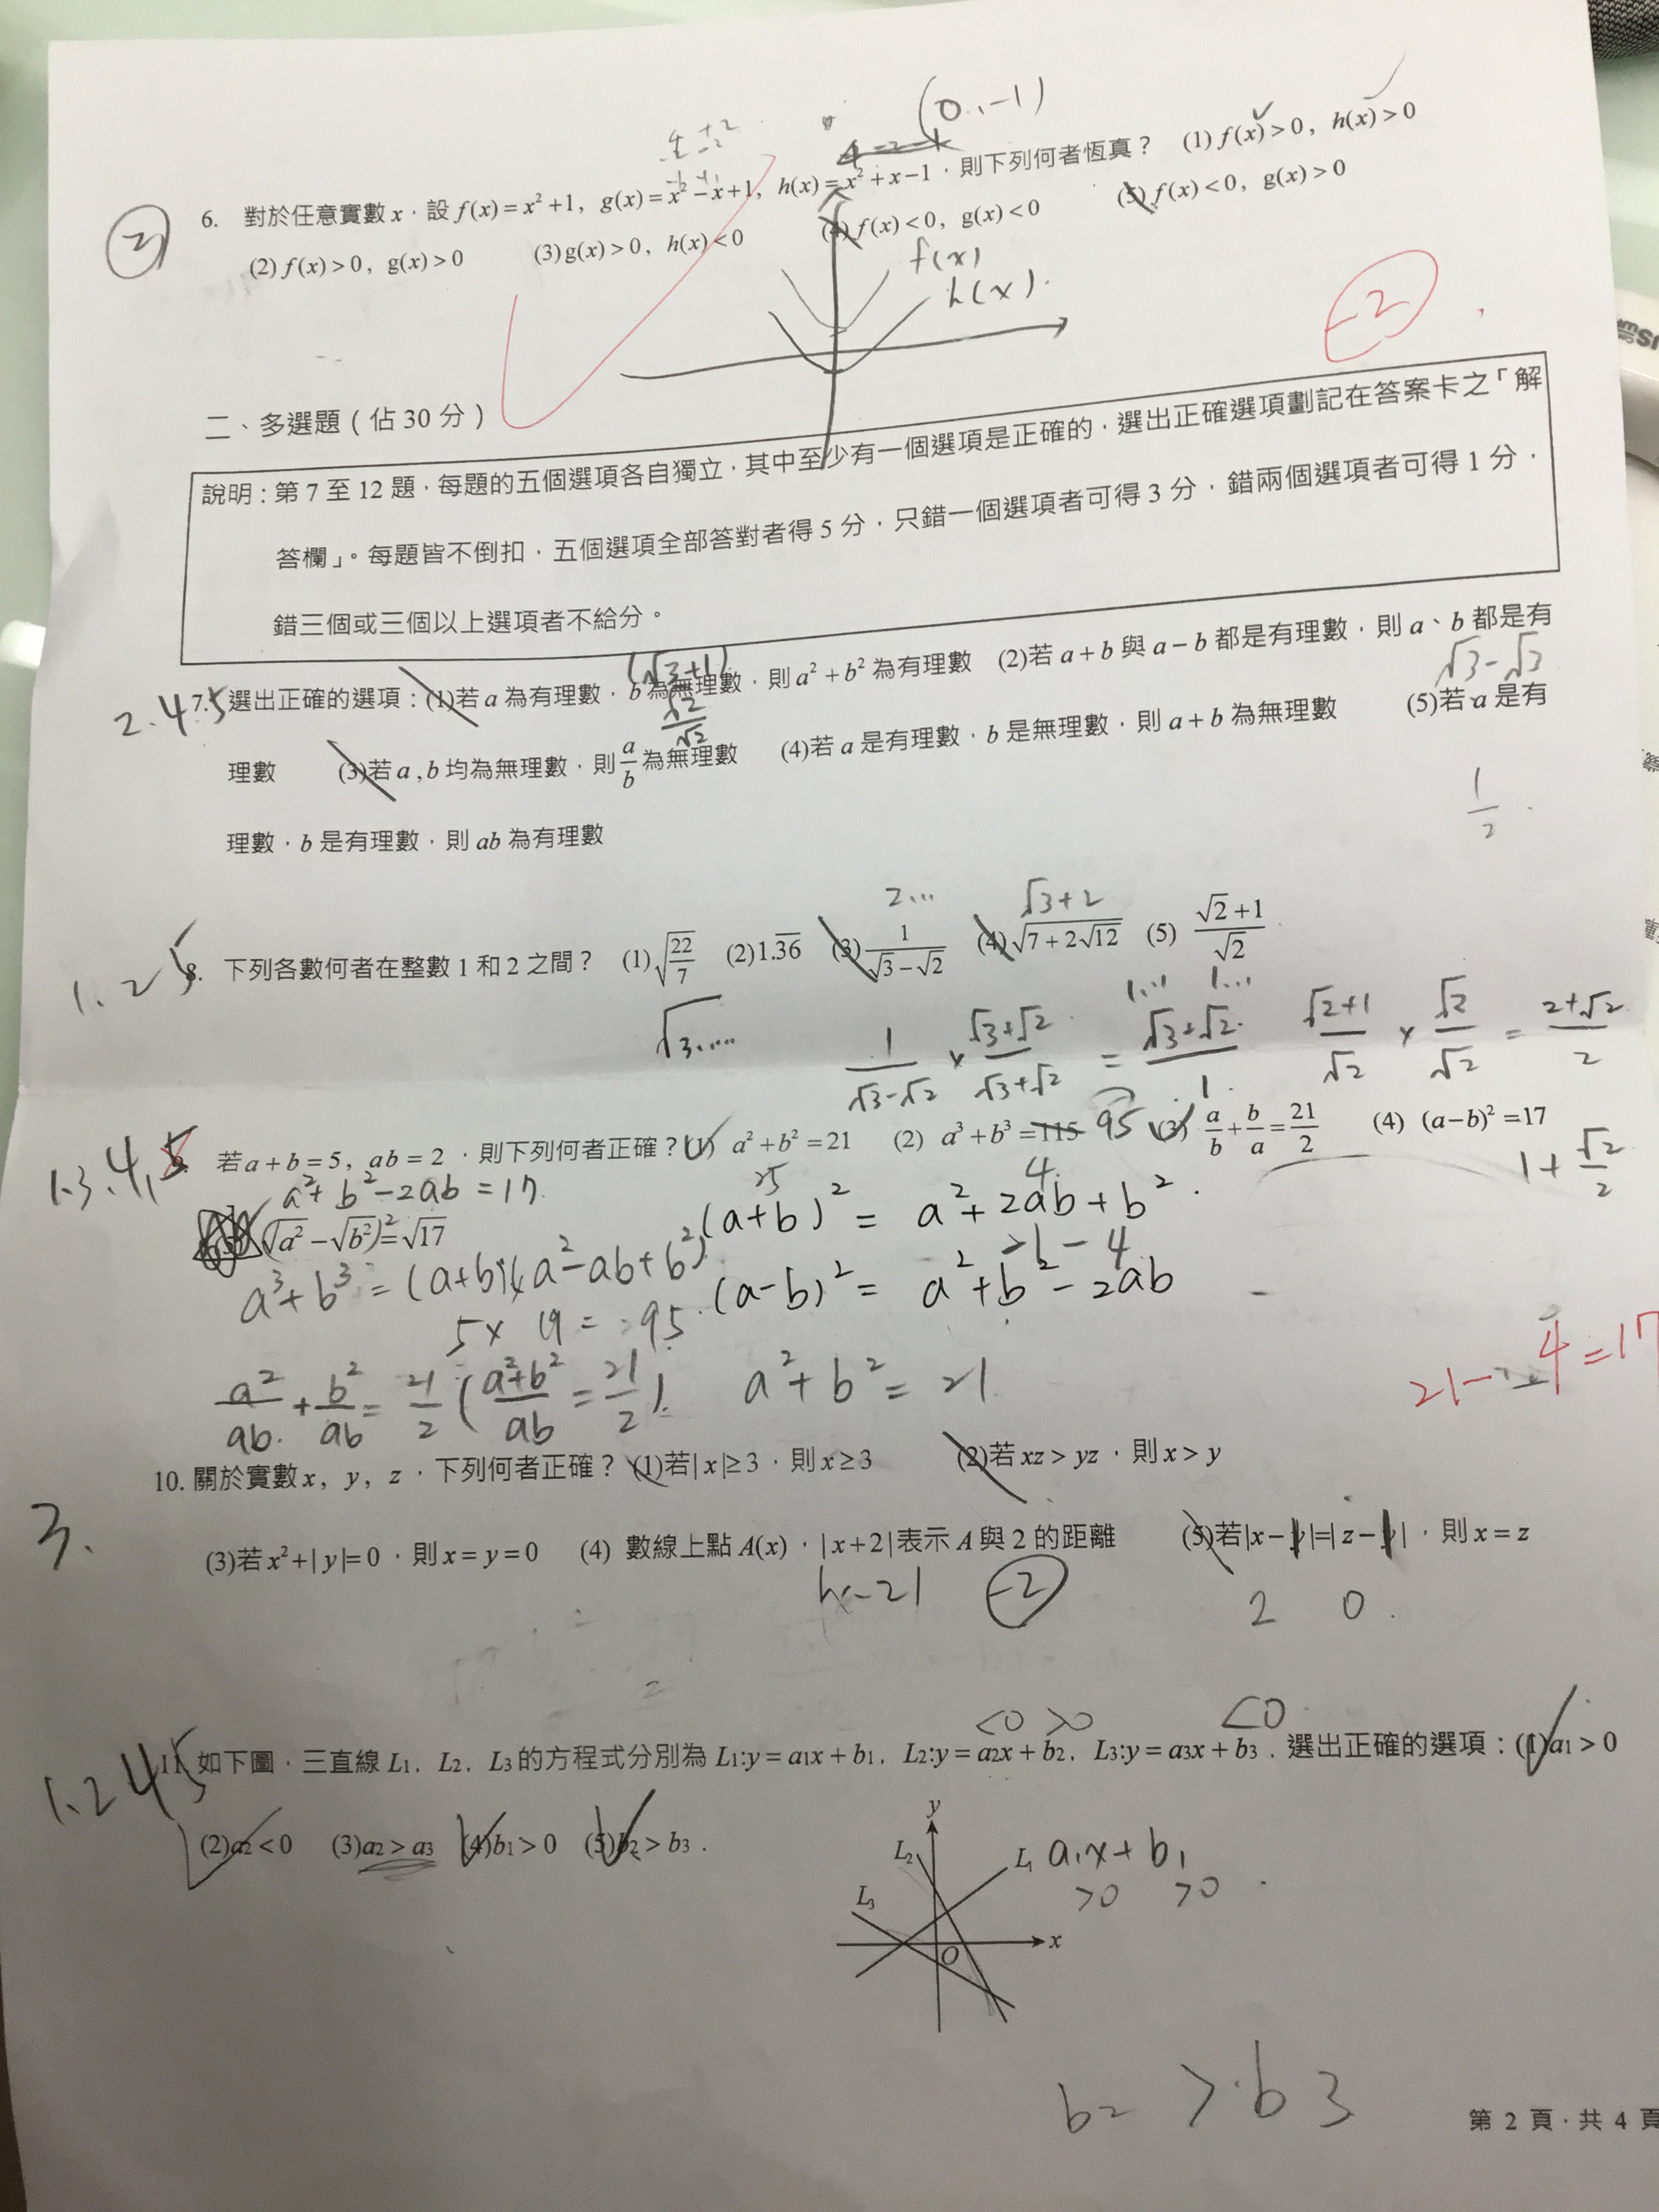 (0,-1)
6. 對於任意實數 x,設 f(x)=x²+1, g(x)=x²-x+1, h(x)=x²+x-1,則下列何者恆真? (1) f(x)>0, h(x)>0
(2) f(x)>0, g(x)>0 (3) g(x)>0, h(x)<0 (4) f(x)<0, g(x)<0 (5) f(x)<0, g(x)>0
f(x)
h(x).
-2
二、多選題(佔 30 分)
說明:第 7 至 12 題,每題的五個選項各自獨立,其中至少有一個選項是正確的,選出正確選項劃記在答案卡之「解
答欄」。每題皆不倒扣,五個選項全部答對者得 5 分,只錯一個選項者可得 3 分,錯兩個選項者可得 1 分,
錯三個或三個以上選項者不給分。
(√3+1)
√3-√3
2.4.5
7. 選出正確的選項:(1)若 a 為有理數,b 為無理數,則 a²+b² 為有理數 (2)若 a+b 與 a-b 都是有理數,則 a、b 都是有
√2/√2
理數 (3)若 a,b 均為無理數,則 a/b 為無理數 (4)若 a 是有理數,b 是無理數,則 a+b 為無理數 (5)若 a 是有
1/2
理數,b 是有理數,則 ab 為有理數
2... √3+2
1.2.5
8. 下列各數何者在整數 1 和 2 之間? (1) √(22/7) (2) 1.3̅6̅ (3) 1/(√3-√2) (4) √(7+2√12) (5) (√2+1)/√2
√3.....
1... 1...
1/(√3-√2) × (√3+√2)/(√3+√2) = (√3+√2)/1
(√2+1)/√2 × √2/√2 = (2+√2)/2
1+√2/2
1.3.4,5
9. 若 a+b=5, ab=2,則下列何者正確? (1) a²+b²=21 (2) a³+b³=115 95 (3) a/b+b/a=21/2 (4) (a-b)²=17
a²+b²-2ab=17
25 4
(a+b)² = a²+2ab+b²
(5) (√a²-√b²)²=√17
21-4
a³+b³=(a+b)(a²-ab+b²)
(a-b)² = a²+b²-2ab
5×19=95
21-4=17
a²/ab + b²/ab = 21/2 ((a²+b²)/ab = 21/2) a²+b²=21
10. 關於實數 x, y, z,下列何者正確? (1)若|x|≥3,則 x≥3 (2)若 xz>yz,則 x>y
3.
(3)若 x²+|y|=0,則 x=y=0 (4) 數線上點 A(x),|x+2|表示 A 與 2 的距離 (5)若|x-y|=|z-y|,則 x=z
|x-2| -2 2 0
<0 >0 <0
1.2 4 5
11. 如下圖,三直線 L₁, L₂, L₃ 的方程式分別為 L₁:y=a₁x+b₁, L₂:y=a₂x+b₂, L₃:y=a₃x+b₃.選出正確的選項:(1) a₁>0
(2) a₂<0 (3) a₂>a₃ (4) b₁>0 (5) b₂>b₃.
y
L₂
L₁
a₁x+b₁
>0 >0
L₃
O
x
b₂>b3
第 2 頁,共 4 頁